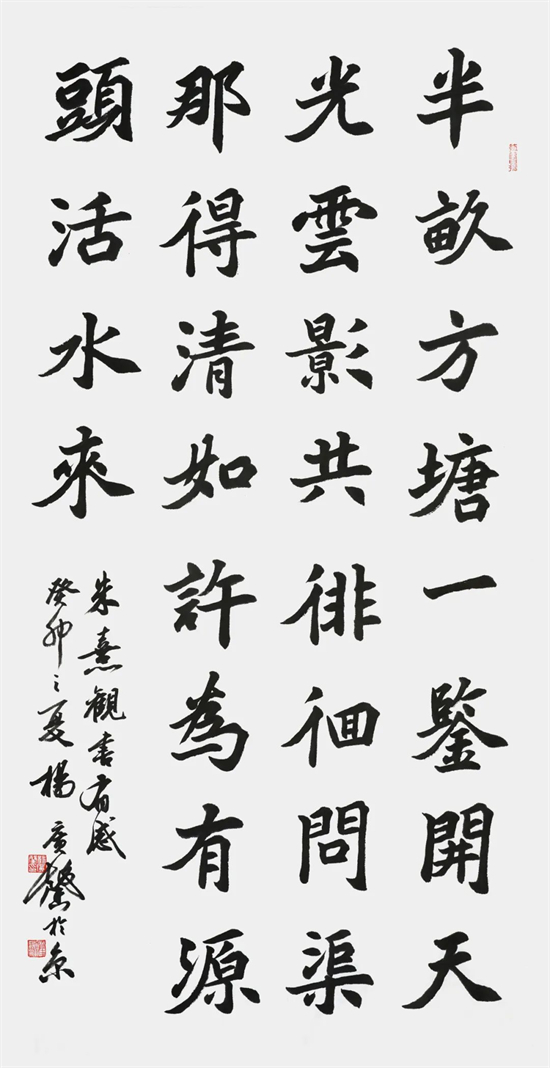 半畝方塘一鑒開天
光雲影共徘徊問渠
那得清如許為有源
頭活水來
朱熹觀書有感
癸卯之夏楊廣馨於京